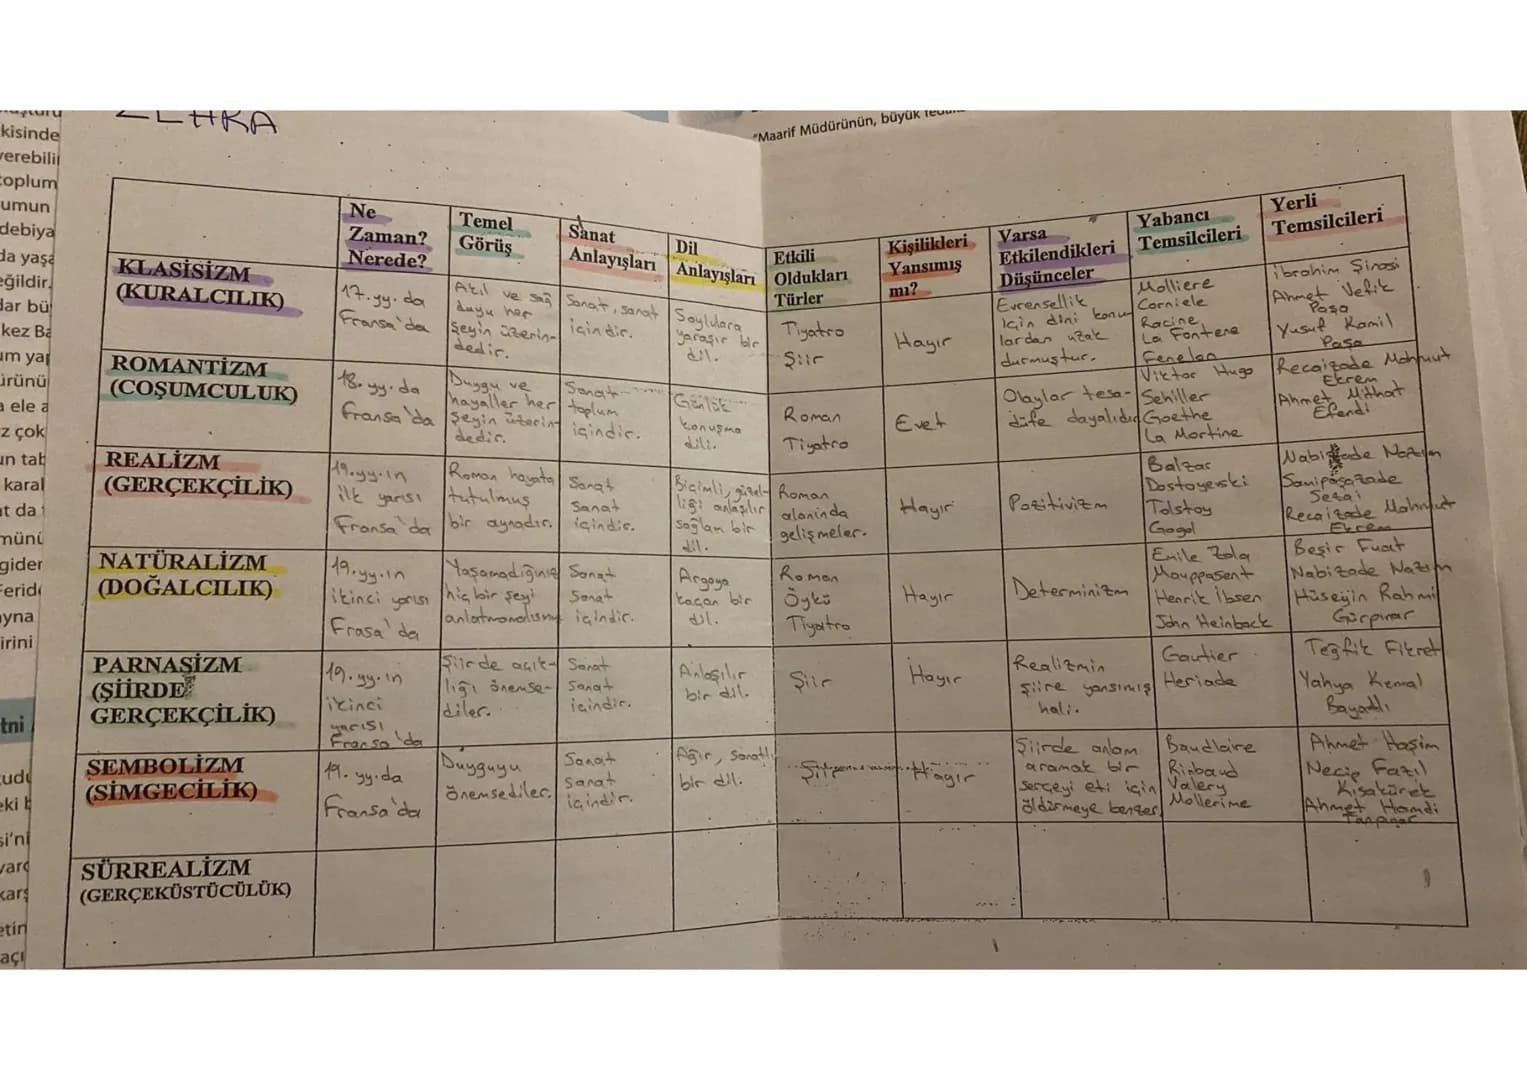 kisinde
verebili
toplum
umun
debiya
da yaşa
eğildir.
dar bü
kez Ba
um yap
ürünü
a ele a
z çok
un tab
karal
at da
münü
gider
Feride
ayna
irini
tni
eki b
si'ni
vard
karş
etin
açı
"Maarif Müdürünün, büyük
Ne Zaman? Nerede?
Temel Görüş
Sanat Anlayışları
Dil Anlayışları
Etkili Oldukları Türler
Kişilikleri Yansımış mı?
Varsa Etkilendikleri Düşünceler
Yabancı Temsilcileri
Yerli Temsilcileri
KLASİSİZM
(KURALCILIK)
17.yy. da
Fransa'da
Akıl ve sağ
duyu her
şeyin üzerin-
dedir.
Sanat, sanat
içindir.
Soylulara
yaraşır bir
dil.
Tiyatro
Şiir
Hayır
Evrensellik
için dini konu
lardan uzak
durmuştur.
Molliere
Corniele
Racine
La Fontene
Fenelon
İbrahim Şinasi
Ahmet Vefik
Paşa
Yusuf Kamil
Paşa
ROMANTİZM
(COŞUMCULUK)
18. yy. da
Fransa'da
Duygu ve
hayaller her
şeyin üzerin
dedir.
Sanat
toplum
içindir.
Günlük
konuşma
dili.
Roman
Tiyatro
Evet
Olaylar tesa-
düfe dayalıdır
Viktor Hugo
Sehiller
Goethe
La Mortine
Recaizade Mahmut
Ekrem
Ahmet Mithat
Efendi
REALİZM
(GERÇEKÇİLİK)
19.yy.ın
ilk yarısı
Fransa'da
Roman hayata
tutulmuş
bir aynadır.
Sanat
sanat
içindir.
Biçimli, güzel-
liği anlaşılır
sağlam bir
dil.
Roman
alanında
gelişmeler.
Hayır
Pozitivizm
Balzac
Dostoyevski
Tolstoy
Gogol
Nabizade Nazım
Samipaşazade
Sezai
Recaizade Mahmut
Ekrem
NATÜRALİZM
(DOĞALCILIK)
19.yy.ın
ikinci yarısı
Frasa'da
Yaşamadığınız
hiç bir şeyi
anlatmamalısınız
Sanat
Sanat
içindir.
Argoya
kaçan bir
dil.
Roman
Öykü
Tiyatro
Hayır
Determinizm
Emile Zola
Mauppasent
Henrik İbsen
John Heinback
Beşir Fuat
Nabizade Nazım
Hüseyin Rahmi
Gürpınar
PARNASİZM
(ŞİİRDE
GERÇEKÇİLİK)
19.yy.ın
ikinci
yarısı
Fransa'da
Şiirde açık-
lığı önemse-
diler.
Sanat
sanat
içindir.
Anlaşılır
bir dil.
Şiir
Hayır
Realizmin
şiire yansımış
hali.
Gautier
Heriade
Tevfik Fikret
Yahya Kemal
Bayatlı
SEMBOLİZM
(SİMGECİLİK)
19. yy.da
Fransa'da
Duyguyu
önemsediler.
Sanat
sanat
içindir.
Ağır, sanatlı
bir dil.
Şiir
Hayır
Şiirde anlam
aramak bir
serçeyi eti için
öldürmeye benzer
Baudlaire
Rinbaud
Valery
Mollerime
Ahmet Haşim
Necip Fazıl
Kısakürek
Ahmet Hamdi
Tanpınar
SÜRREALİZM
(GERÇEKÜSTÜCÜLÜK)